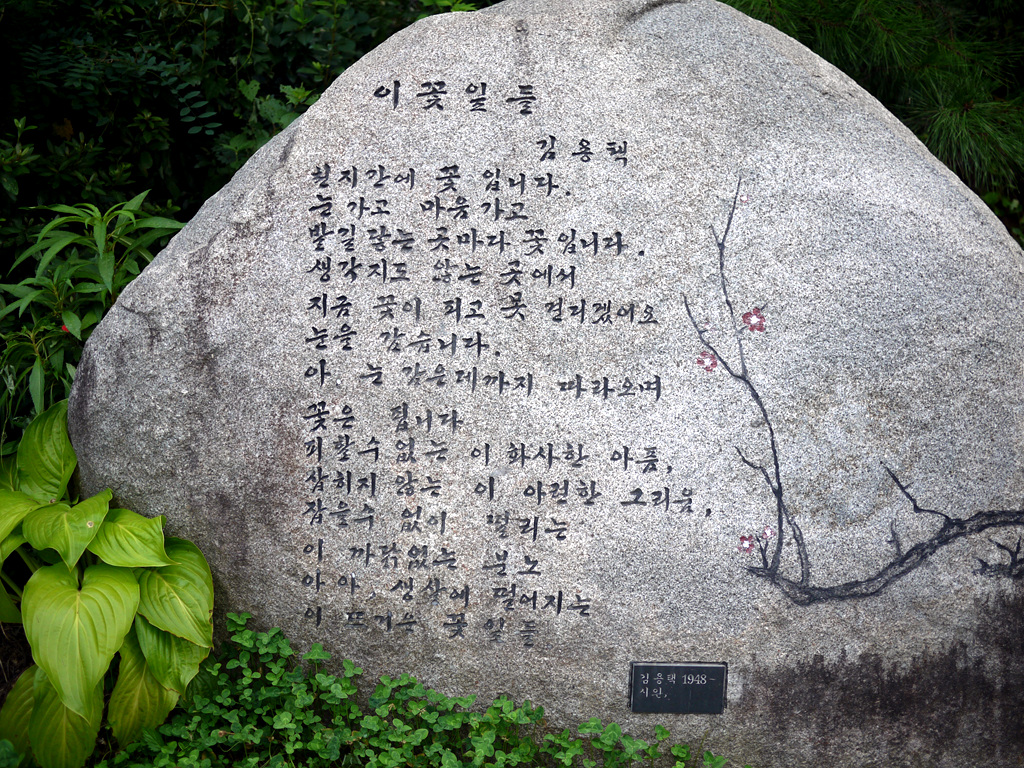 이 꽃잎 들
김 용 택
천지간에 꽃 입니다.
눈 가고 마음 가고
발길 닿는 곳마다 꽃입니다.
생각지도 않는 곳에서
지금 꽃이 피고 못 견디겠어요
눈을 감습니다.
아. 눈 감은데까지 따라오며
꽃은 핍니다
피할수 없는 이 화사한 아픔,
삭히지 않는 이 아련한 그리움,
참을수 없이 떨리는
이 까닭없는 분노
아 아. 생살에 떨어지는
이 뜨거운 꽃 잎 들
김 용 택 1948~
시인.